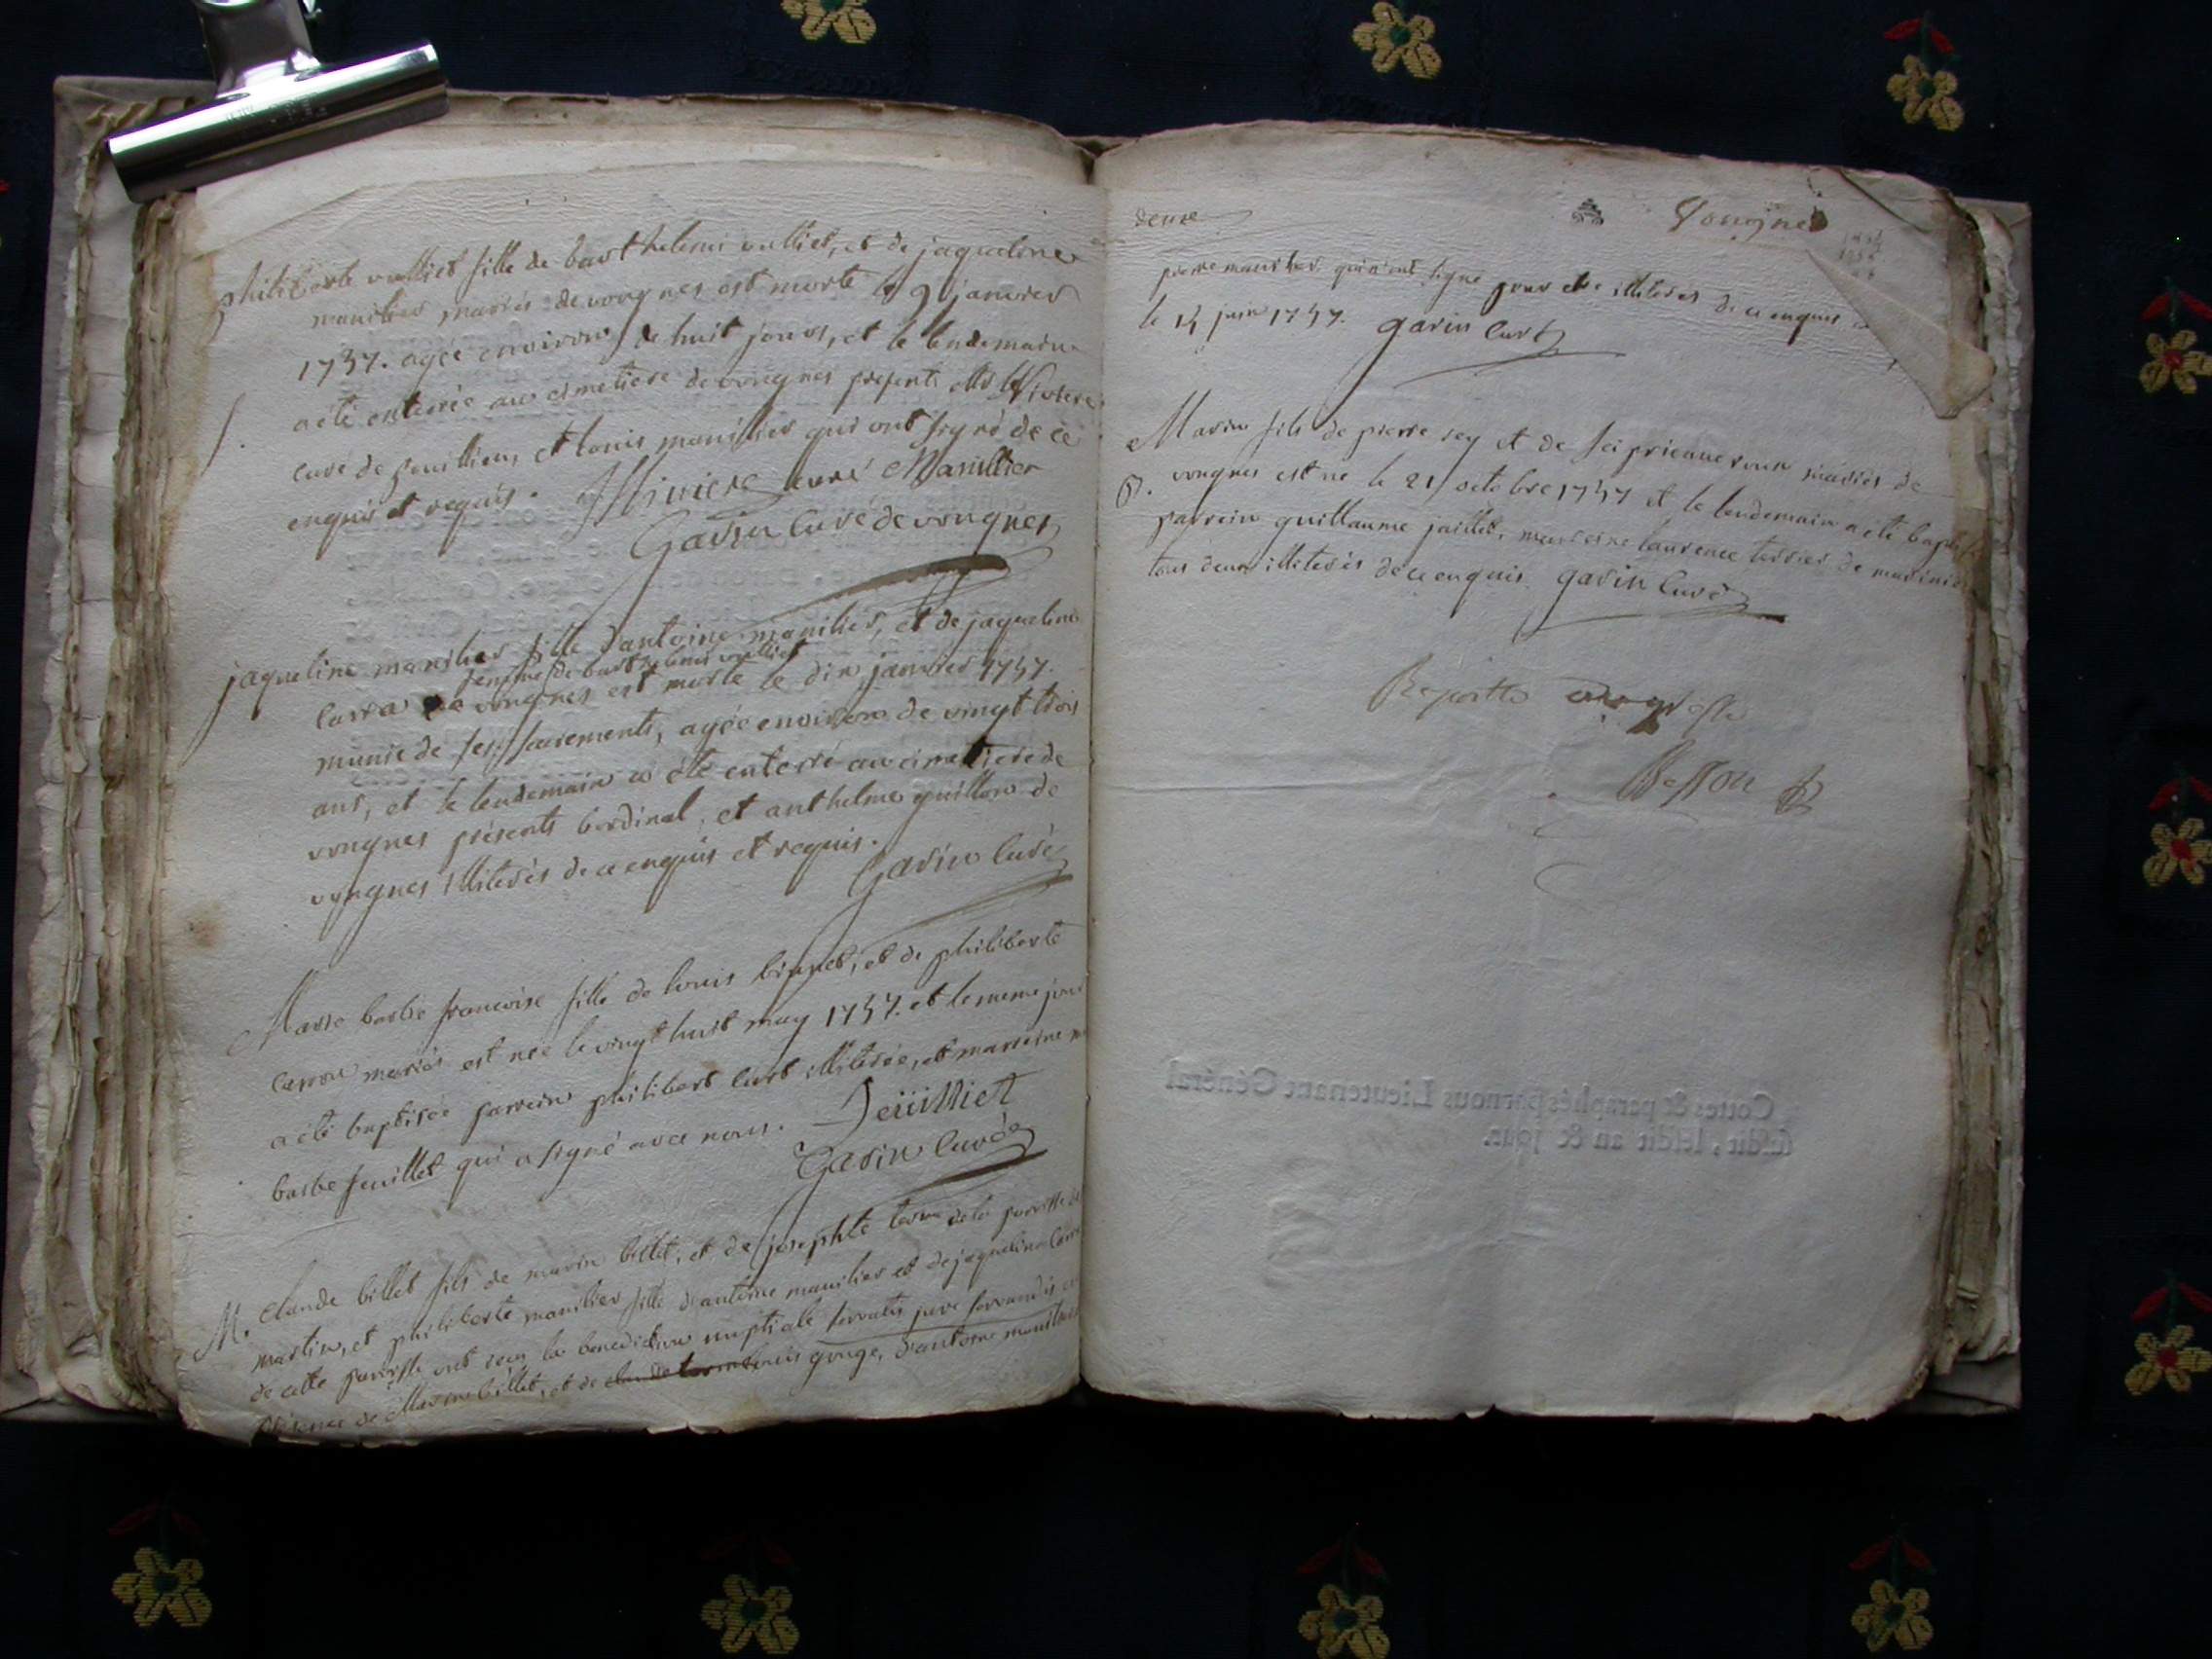 philiberte vulliet fille de barthelemi vulliet, et de jaqueline
manilier mariés de vongnes est morte le 9 janvier
1757. agée environ de huit jours, et le lendemain
a été enterrée au cimetiere de vongnes présents
curé de et louis manillier qui ont signé de ce
enquis et requis. curé Manillier
Garin Curé de vongnes
jaqueline manilier fille d'antoine manilier, et de jaqueline
femme de barthelemi vulliet
Carra de vongnes est morte le dix janvier 1757.
munie de ses sacrements, agée environ de vingt trois
ans, et le lendemain a été enterré au cimetiere de
vongnes présents bordinal, et anthelme guillon de
vongnes illiterés de ce enquis et requis.
Garin Curé
Marie barbe francoise fille de louis et de philiberte
mariés est née le vingt huit may 1757. et le meme jour
a été baptisée parrein philibert illiterée, et marreine
barbe feuillet qui a signé avec nous. feüilliet
Garin Curé
M. Claude billet fils de marin billet, et de josephte de la parroisse de
martin, et philiberte manilier fille d'antoine manilier et de jaqueline Carra
de cette parroisse ont reçu la benediction nuptiale servatis jure servandis
présence de billet, et de louis gouge, d'antoine
deuxe
Vongnes
pierre manilier qui n'ont signé pour etre illiterés de ce enquis
le 14 juin 1757. Garin Curé
Marin fils de pierre rey et de mariés de
B. vongnes est né le 21 octobre 1757 et le lendemain a été
parrein guillaume jaillet, marreine laurence terrier de
tous deux illiterés de ce enquis. Garin Curé
Besson
Cottés & paraphés par nous Lieutenant Général
susdit, lesdit an & jour.